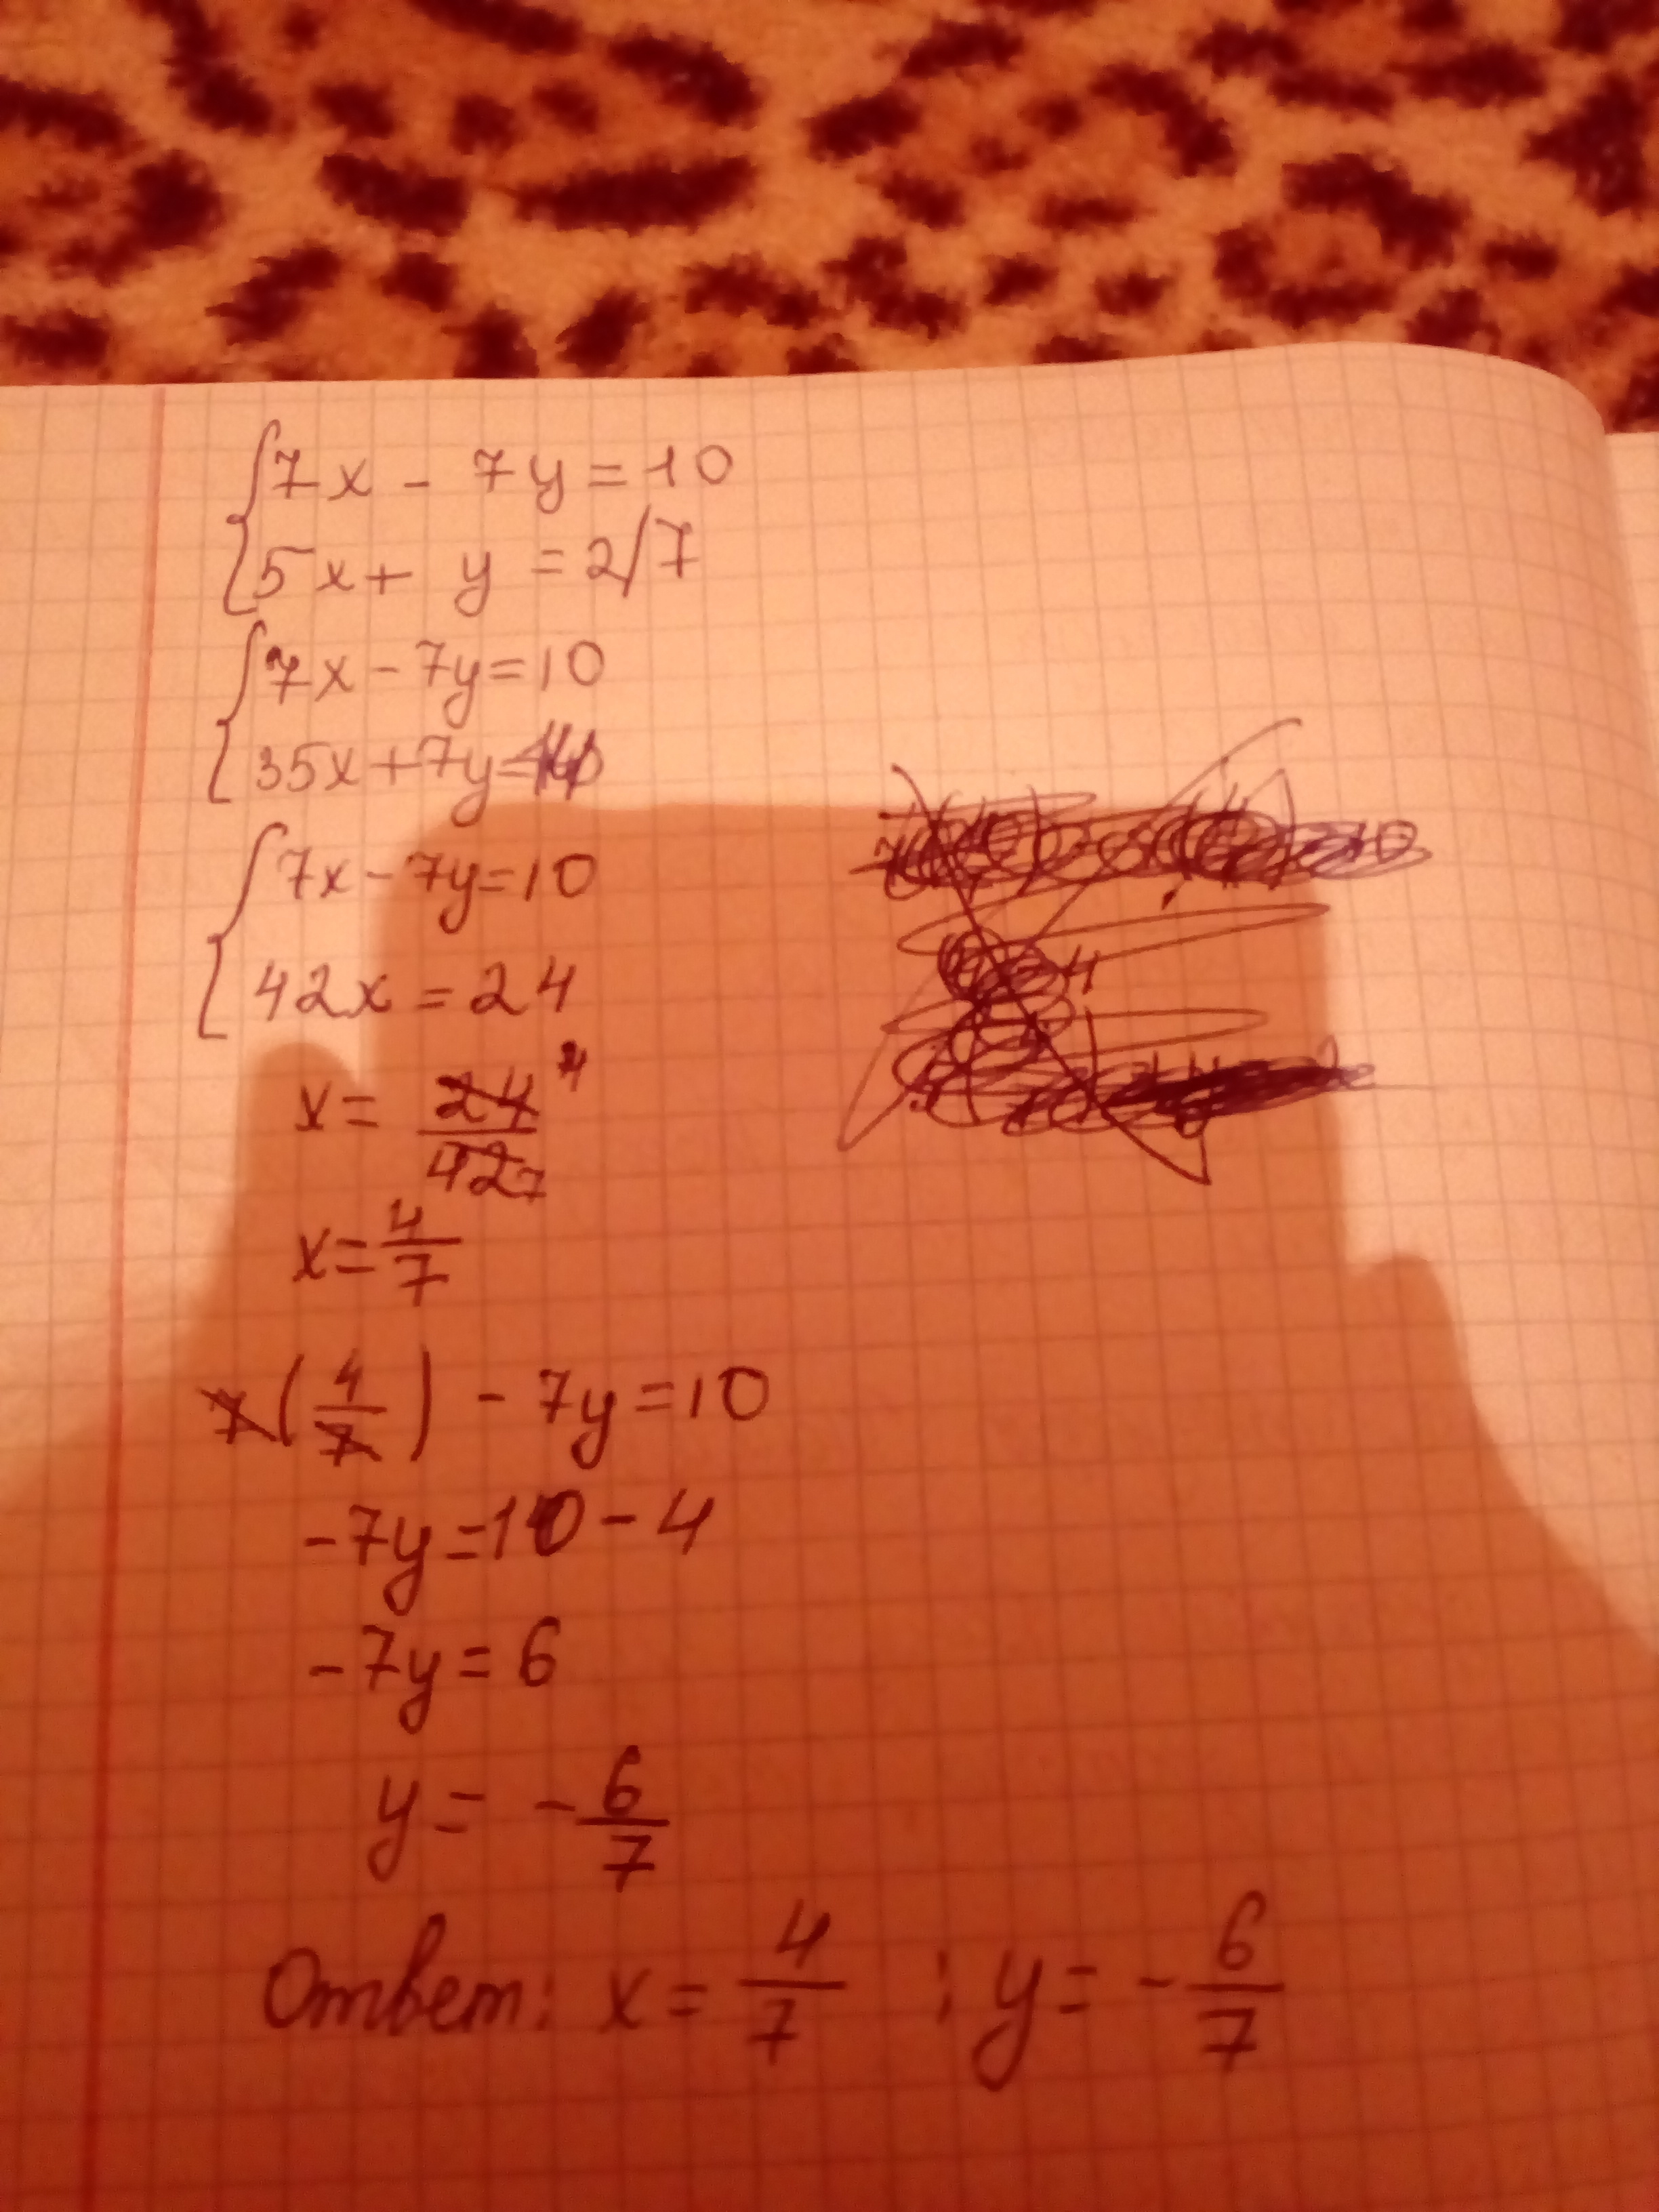 7x - 7y = 10
5x + y = 2/7
7x - 7y = 10
35x + 7y =
7x - 7y = 10
42x = 24
x = 24/42 4 7
x = 4/7
7(4/7) - 7y = 10
-7y = 10 - 4
-7y = 6
y = -6/7
Ответ: x = 4/7 ; y = -6/7